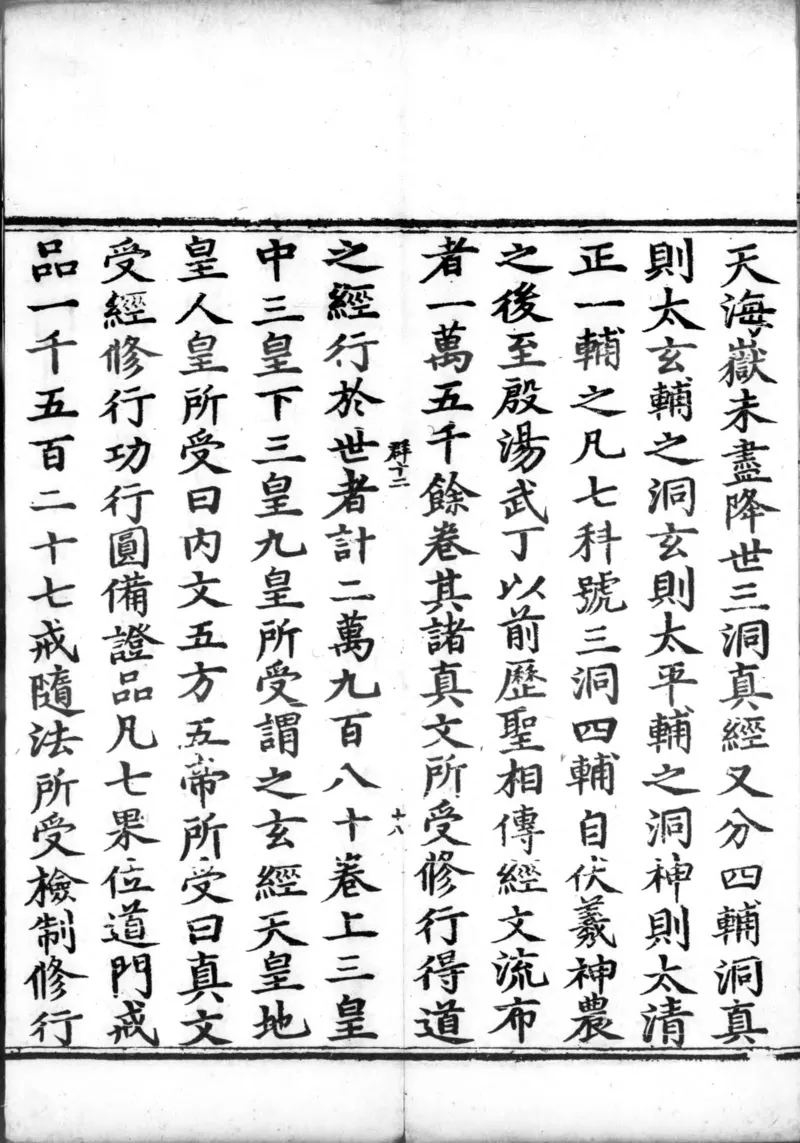 天海嶽未盡降世三洞真經又分四輔洞真
則太玄輔之洞玄則太平輔之洞神則太清
正一輔之凡七科號三洞四輔自伏羲神農
之後至殷湯武丁以前歷聖相傳經文流布
者一萬五千餘卷其諸真文所受修行得道
群十二
十八
之經行於世者計二萬九百八十卷上三皇
中三皇下三皇九皇所受謂之玄經天皇地
皇人皇所受曰内文五方五帝所受曰真文
受經修行功行圓備證品凡七果位道門戒
品一千五百二十七戒隨法所受檢制修行